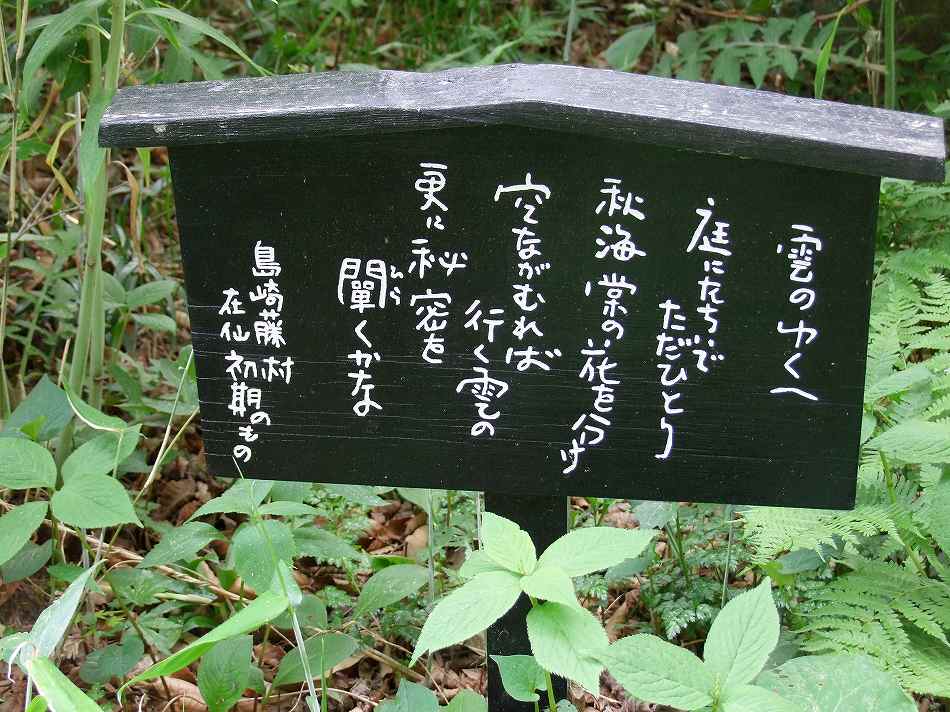 雲のゆくへ
庭にたちいで
ただひとり
秋海棠の花を分け
空ながむれば
行く雲の
更に秘密を
闡くかな
ひら
島崎藤村
在仙初期のもの